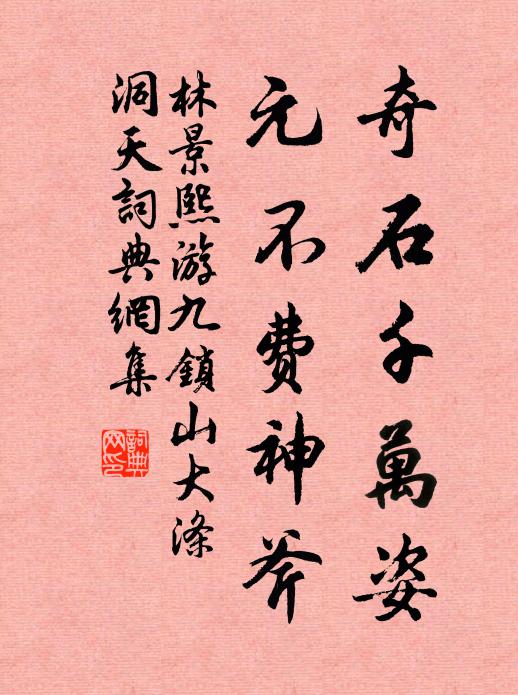 奇石千萬姿
元不费神斧
林景熙游九鎖山大涤
洞天詞典網集
詞典網印